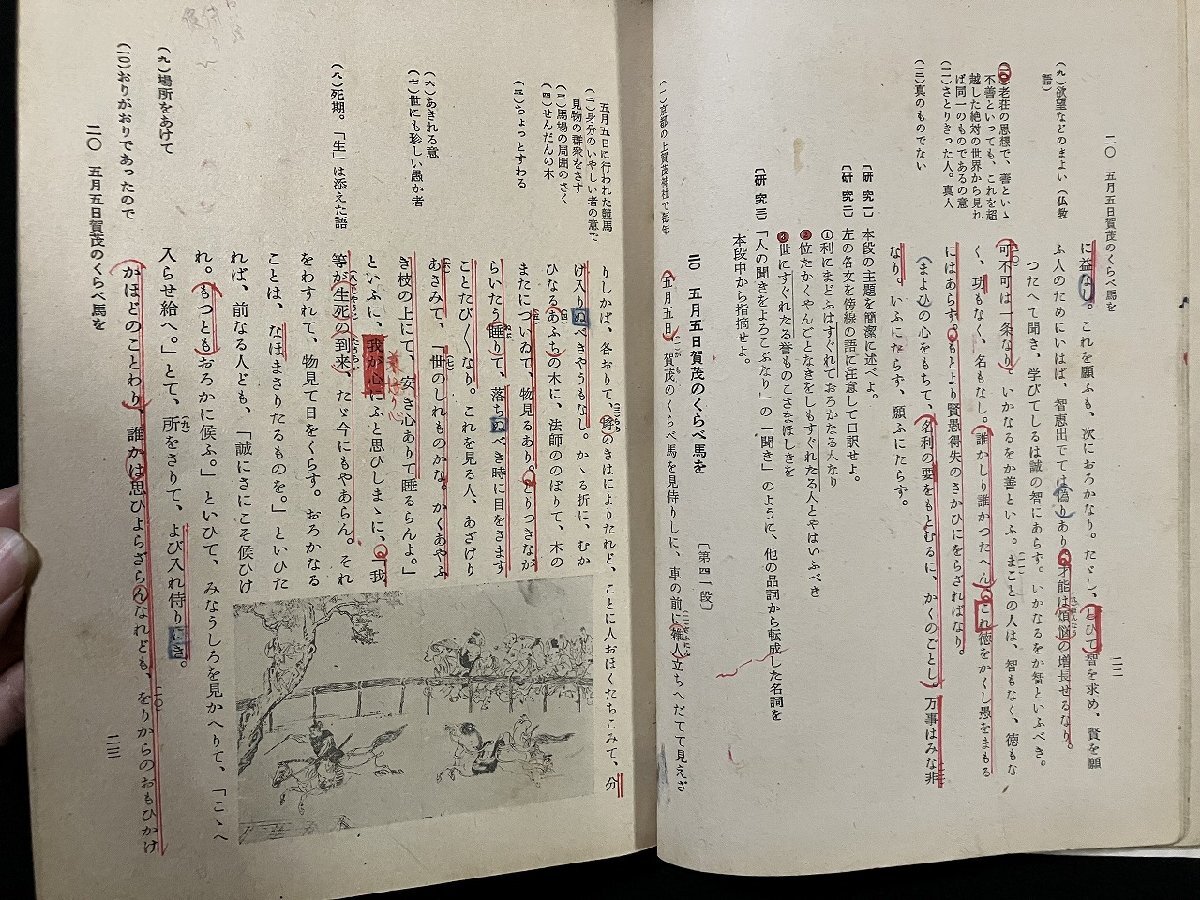 一〇 五月五日賀茂のくらべ馬を
二二
(九)欲望などのまよい(仏教
語)
老荘の思想で、善といゝ
不善といっても、これを超
越した絶対の世界から見れ
ば同一のものであるの意
(二)さとりきった人。真人
(三)真のものでない
に益なし。これを願ふも、次におろかなり。
智を求め、賢を願
ふ人のためにいはば、智恵出でては偽りあり。才能は煩悩の増長せるなり。
つたへて聞き、学びてしるは誠の智にあらず。いかなるをか智といふべき。
可不可は一条なり。いかなるをか善といふ。まことの人は、智もなく、徳もな
く、功もなく、名もなし。誰かしり誰かつたへん。これ徳をかくし愚をまもる
にはあらず。もとより賢愚得失のさかひにをらざればなり。
まよひの心をもちて、名利の要をもとむるに、かくのごとし。万事はみな非
なり。いふにたらず、願ふにたらず。
〔研究一〕 本段の主題を簡潔に述べよ。
〔研究二〕 左の名文を傍線の語に注意して口訳せよ。
①利にまどふはすぐれておろかなる人なり
②位たかくやんごとなきをしもすぐれたる人とやはいふべき
③世にすぐれたる誉ものこさまほしきを
〔研究三〕 「人の聞きをよろこぶなり」の「聞き」のように、他の品詞から転成した名詞を
本段中から指摘せよ。
二〇 五月五日賀茂のくらべ馬を 〔第四一段〕
(一)京都の上賀茂神社で毎年
五月五日、賀茂のくらべ馬を見侍りしに、車の前に雑人立ちへだてて見えざ
五月五日に行われた競馬
(二)身分のいやしい者の意で
見物の群衆をさす
(三)馬場の周囲のさく
(四)せんだんの木
(五)ちょっとすわる
(六)あきれる意
(七)世にも珍しい愚か者
(八)死期。「生」は添えた語
(九)場所をあけて
(一〇)おりがおりであったので
りしかば、各おりて、埒のきはによりたれど、ことに人おほくたちこみて、分
け入りぬべきやうもなし。かゝる折に、むか
ひなるあふちの木に、法師ののぼりて、木の
またについゐて、物見るあり。とりつきなが
らいたう睡りて、落ちぬべき時に目をさます
ことたび〱なり。これを見る人、あざけり
あさみて、「世のしれものかな。かくあやふ
き枝の上にて、安き心ありて睡るらんよ。」
といふに、我が心にふと思ひしまゝに、「我
等が生死の到来、たゞ今にもやあらん。それ
をわすれて、物見て日をくらす。おろかなる
ことは、なほまさりたるものを。」といひた
れば、前なる人ども、「誠にさにこそ候ひけ
れ。もつともおろかに候ふ。」といひて、みなうしろを見かへりて、「こゝへ
入らせ給へ。」とて、所をさりて、よび入れ侍りにき。
かほどのことわり、誰かは思ひよらざらんなれども、をりからのおもひかけ
二〇 五月五日賀茂のくらべ馬を
二三